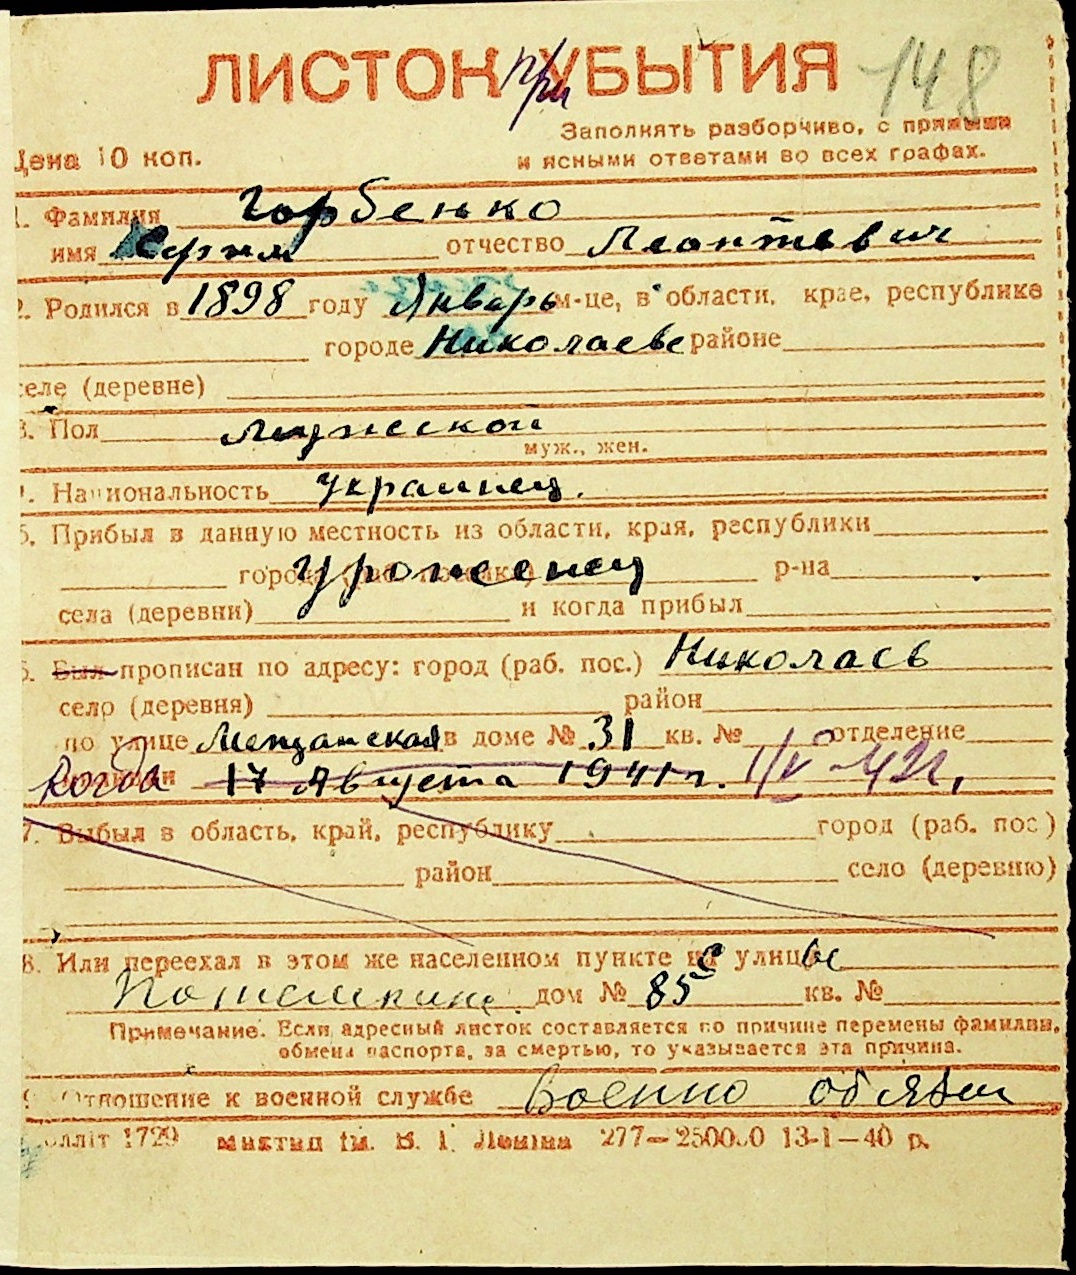 ЛИСТОК при УБЫТИЯ 148
Заполнять разборчиво, с прямыми
Цена 10 коп. и ясными ответами во всех графах.
1. Фамилия Горбенко
имя отчество Леонтьевич
2. Родился в 1898 году Январь м-це, в области, крае, республике
городе Николаеве районе
селе (деревне)
3. Пол мужской
муж., жен.
4. Национальность украинец.
5. Прибыл в данную местность из области, края, республики
города уроженец р-на
села (деревни) и когда прибыл
6. Был прописан по адресу: город (раб. пос.) Николаев
село (деревня) район
по улице Мещанская в доме № 31 кв. № отделение
Когда 17 Августа 1941 г. 1/V - 42 г.
7. Выбыл в область, край, республику город (раб. пос)
район село (деревню)
8. Или переехал в этом же населенном пункте с улицы
дом № 85 кв. №
Примечание. Если адресный листок составляется по причине перемены фамилии,
обмена паспорта, за смертью, то указывается эта причина.
9. Отношение к военной службе Военно обязан
1729 277—250000 13-1—40 р.